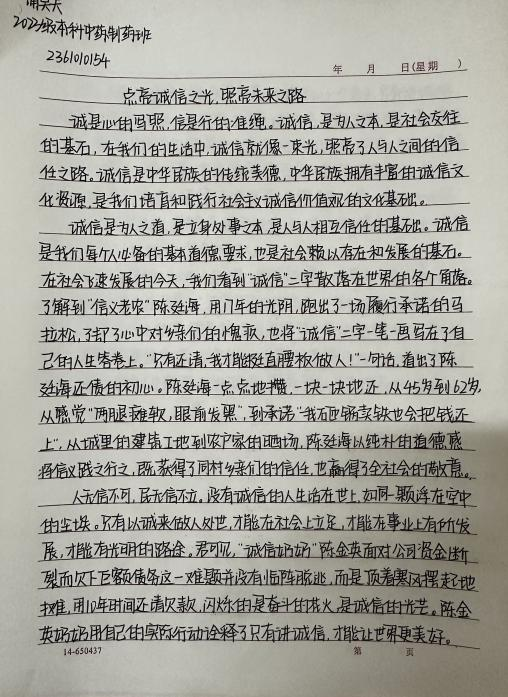 2023级本科中药制药班
2361010154
年 月 日(星期 )
点亮诚信之光,照亮未来之路
诚是心的写照,信是行的准绳。诚信,是为人之本,是社会交往
的基石,在我们的生活中,诚信就像一束光,照亮了人与人之间的信
任之路。诚信是中华民族的传统美德,中华民族拥有丰富的诚信文
化资源,是我们培育和践行社会主义诚信价值观的文化基础。
诚信是为人之道,是立身处事之本,是人与人相互信任的基础。诚信
是我们每个人必备的基本道德要求,也是社会赖以存在和发展的基石。
在社会飞速发展的今天,我们看到"诚信"二字散落在世界的各个角落。
了解到"信义老农"陈廷海,用17年的光阴,跑出了一场履行承诺的马
拉松,了却了心中对乡亲们的愧疚,也将"诚信"二字一笔一画写在了自
己的人生答卷上。"只有还清,我才能挺直腰板做人!"一句话,道出了陈
廷海还债的初心。陈廷海一点点地攒,一块一块地还,从45岁到62岁,
从感觉"两腿瘫软,眼前发黑",到承诺"我砸锅卖铁也会把钱还
上",从城里的建筑工地到农户家的晒场,陈廷海以纯朴的道德感
将信义践之行之,既获得了同村乡亲们的信任,也赢得了全社会的敬意。
人无信不可,民无信不立。没有诚信的人生活在世上,如同一颗浮在空中
的尘埃。只有以诚来做人处世,才能在社会上立足,才能在事业上有所发
展,才能有光明的路途。君可见,"诚信奶奶"陈金英面对公司资金断
裂而欠下巨额债务这一难题并没有临阵脱逃,而是顶着寒风摆起地
摊,用10年时间还清欠款,闪烁的是奋斗的炬火,是诚信的光芒。陈金
英奶奶用自己的实际行动诠释了只有讲诚信,才能让世界更美好。
14-650437 第 页